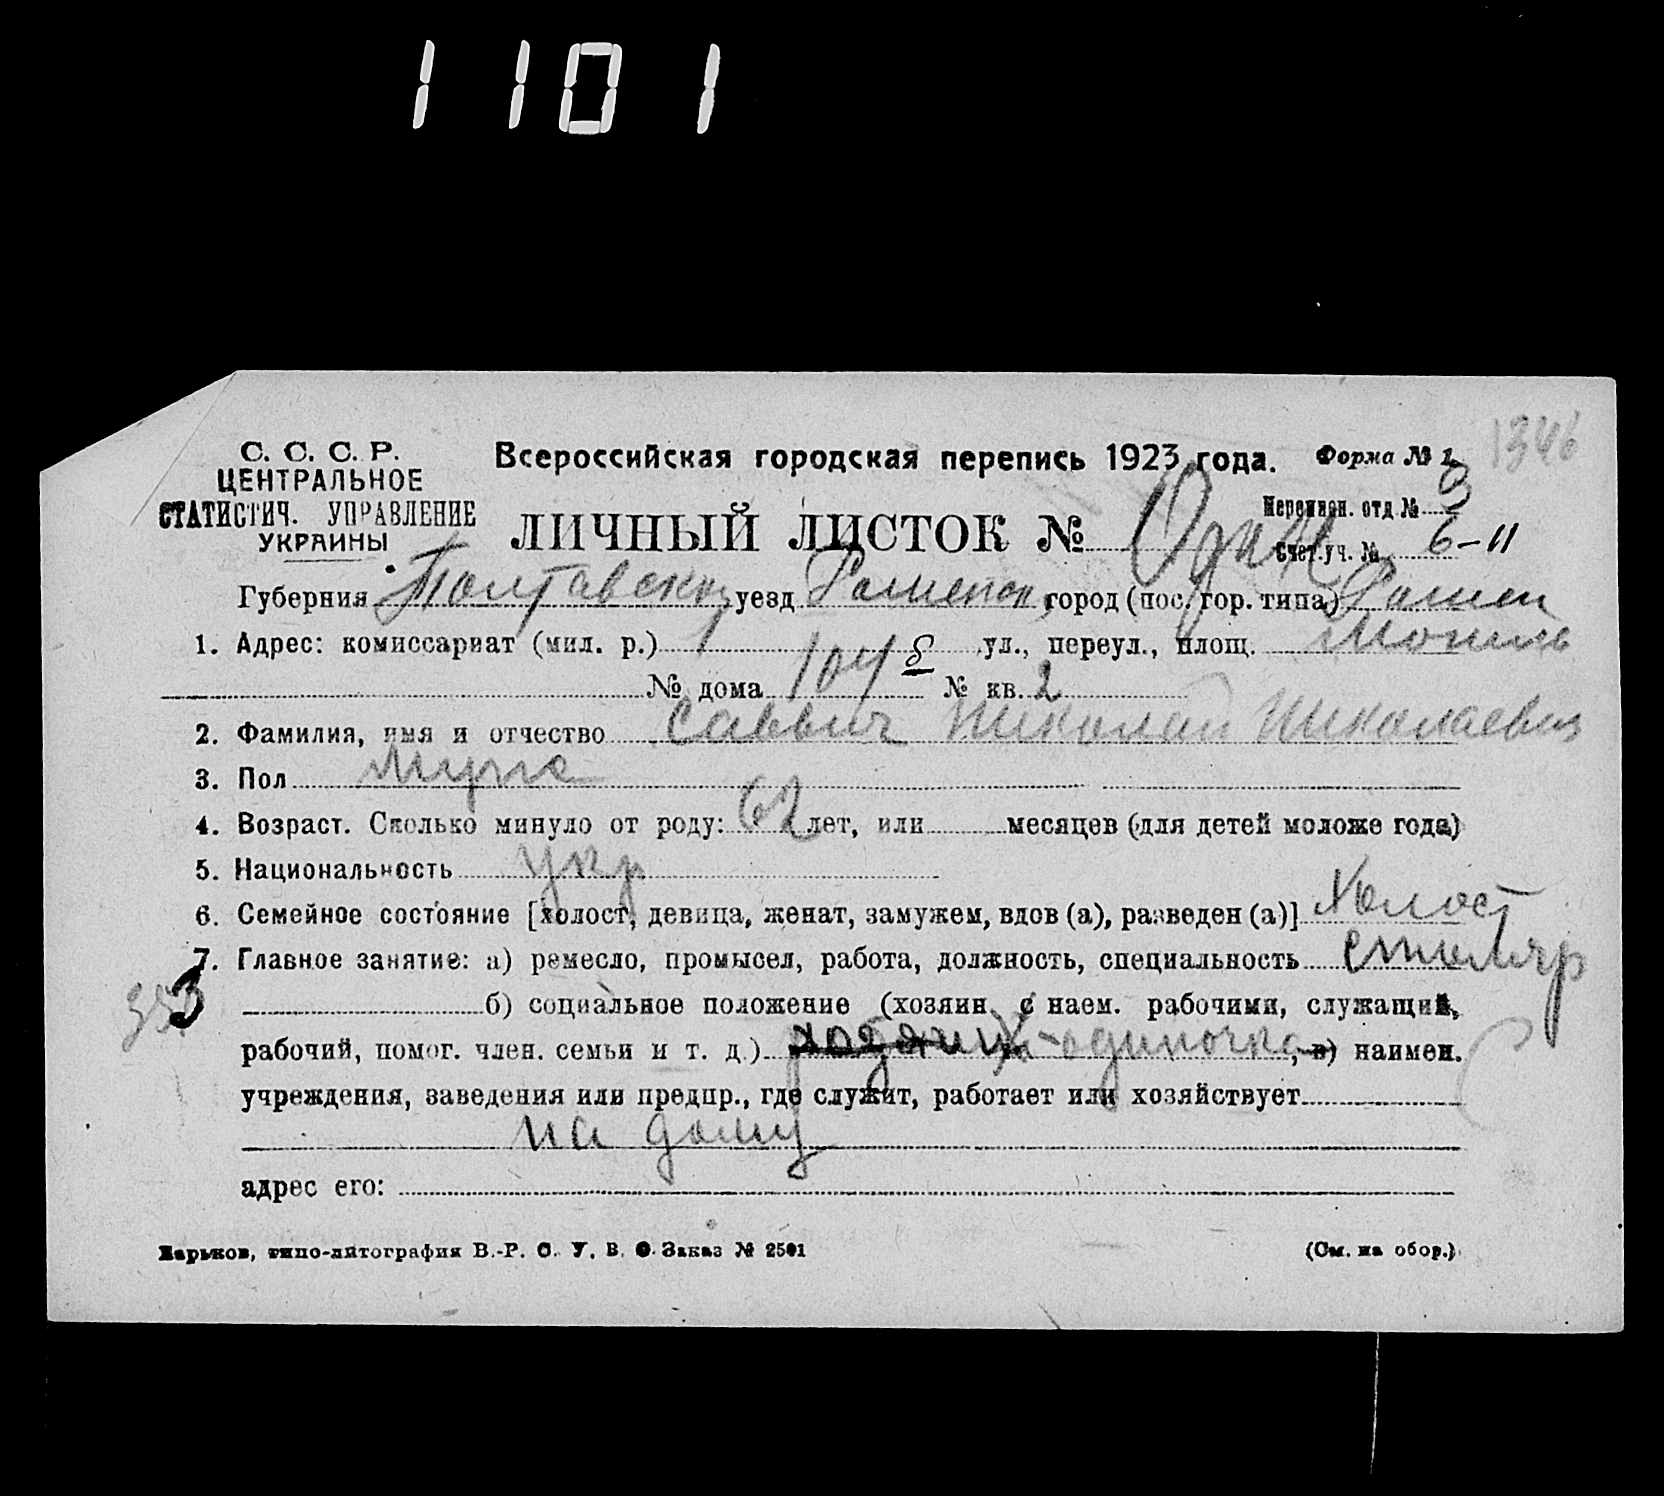 1101
1346
С. С. С. Р.
ЦЕНТРАЛЬНОЕ
СТАТИСТИЧ. УПРАВЛЕНИЕ
УКРАИНЫ
Всероссийская городская перепись 1923 года.
Форма № 1
ЛИЧНЫЙ ЛИСТОК №
Переписн. отд № 3
Счет.уч. № 6-11
Губерния Полтавская уезд Ромен город (пос. гор. типа) Ромен
1. Адрес: комиссариат (мил. р.) 1 ул., переул., площ.
№ дома 104 б № кв. 2
2. Фамилия, имя и отчество Саввич Николай Николаевич
3. Пол Муж
4. Возраст. Сколько минуло от роду: 62 лет, или месяцев (для детей моложе года)
5. Национальность укр
6. Семейное состояние [холост, девица, женат, замужем, вдов (а), разведен (а)] Холост
7. Главное занятие: а) ремесло, промысел, работа, должность, специальность столяр
3 б) социальное положение (хозяин с наем. рабочими, служащий,
рабочий, помог. член. семьи и т. д.) хозяин-одиночка, в) наимен.
учреждения, заведения или предпр., где служит, работает или хозяйствует
на дому
адрес его:
Харьков, типо-литография В.-Р. С. У. В. О. Заказ № 2501
(См. на обор.)